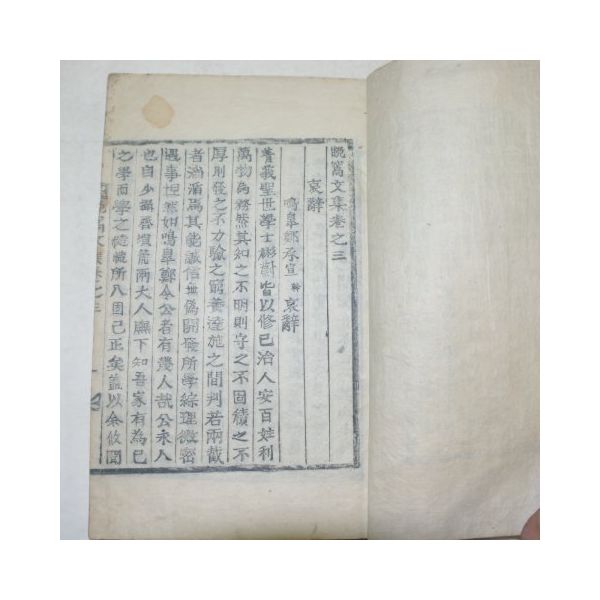 晩窩文集卷之三
哀辭
鳴臯鄭承宣榦哀辭
菁莪聖世學士彬彬皆以修己治人安百姓利
萬物爲務然其知之不明則守之不固積之不
厚則發之不力隃之窮養達施之間判若兩截
者滔滔爲其能誠信無僞開發所學綜理微密
遇事坦然如鳴臯鄭令公者有幾人哉公永人
也自少攝齊塤箎兩大人廡下知吾家有爲己
之學而學之 所入固已正矣蓋以余攸聞
晩窩文集卷之三